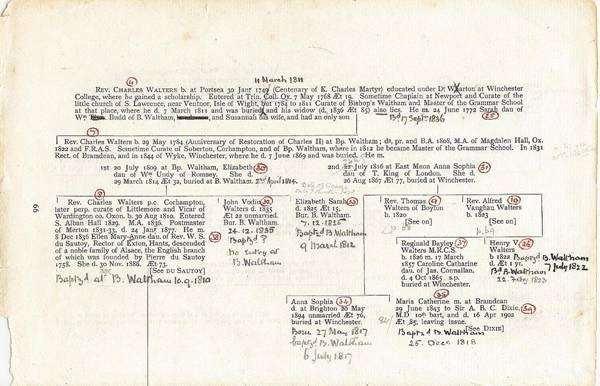 11 March 1811
④
REV. CHARLES WALTERS b. at Portsea 30 Jan? 1749 (Centenary of K. Charles Martyr) educated under Dr Warton at Winchester
College, where he gained a scholarship. Entered at Trin. Coll. Ox. 7 May 1768 Æt 19. Sometime Chaplain at Newport and Curate of the
little church of S. Lawrence, near Ventnor, Isle of Wight, but 1784 to 1811 Curate of Bishop's Waltham and Master of the Grammar School
at that place, where he d. 7 March 1811 and was buried, and his widow (d. 1836 Æt 85) also lies. He m. 24 June 1772 Sarah dau. of
Wm. Budd of B. Waltham, and Susannah his wife, and had an only son
Bd 17 Sept 1836
㉕
⑦
Rev. Charles Walters b. 29 May 1784 (Anniversary of Restoration of Charles II) at Bp. Waltham; dit, pr. and B.A. 1808, M.A. of Magdalen Hall, Ox.
1822 and F.R.A.S. Sometime Curate of Soberton, Corhampton, and of Bp. Waltham, where in 1812 he became Master of the Grammar School. In 1831
Rect. of Bramdean, and in 1844 of Wyke, Winchester, where he d. 7 June 1869 and was buried. He m.
1st 20 July 1809 at Bp. Waltham, Elizabeth
dau. of Wm Undy of Romsey. She d.
29 March 1814 Æt 32, buried at B. Waltham. 2nd April 1814.
㉚
2nd July 1816 at East Meon Anna Sophia
dau. of T. King of London. She d.
26 Aug 1867 Æt 77, buried at Winchester.
㉛
⑧
Rev. Charles Walters p.c. Corhampton,
later perp. curate of Littlemore and Vicar of
Wardington co. Oxon. b. 30 Aug 1810. Entered
S. Alban Hall 1829. M.A. 1836. Postmaster
of Merton 1831-33, d. 24 Jan? 1877. He m.
8 Dec 1836 Ellen Mary-Anne dau. of Rev. W. S.
du Sautoy, Rector of Exton, Hants, descended
of a noble family of Alsace, the English branch
of which was founded by Pierre du Sautoy
1758. She d. 30 Nov. 1888, Æt 73.
[SEE DU SAUTOY]
Baptzd at B. Waltham 10.9.1810
John Vodin
d. 1835 Æt
22 unmarried.
Bur. B. Waltham.
24.12.1835
Baptzd ?
no entry at
B. Waltham
Elizabeth Sarah
d. 1825 Æt 15.
Bur. B. Waltham.
7.12.1825
Baptzd B. Waltham
9 March 1812
Rev. Thomas ⑨
b. 1820
[See on]
Rev. Alfred ⑩
Vaughan Walters
b. 1823
[See on]
p. 69
Reginald Bayley ㊲
Walters M.R.C.S.
b. 1826 m. 17 March
1857 Caroline Catharine
dau. of Jas. Connallan.
d. 4 Oct 1865. s.p.
buried at Winchester.
Henry V. ㊱
b. 1822 B. Waltham
d. Æt 1 yr. 7 July 1822
Bd B. Waltham
22 Feby 1823
66
Anna Sophia ㉞
d. at Brighton 20 May
1894 unmarried Æt 76,
buried at Winchester.
Born 27 May 1817
baptzd B. Waltham
6 July 1817
Maria Catherine m. at Bramdean
29 June 1843 to Sir A. B. C. Dixie,
M.D 10th bart, and d. 16 Apr 1902
Æt 85, leaving issue.
[See DIXIE]
Baptzd B. Waltham
25. Decr 1818